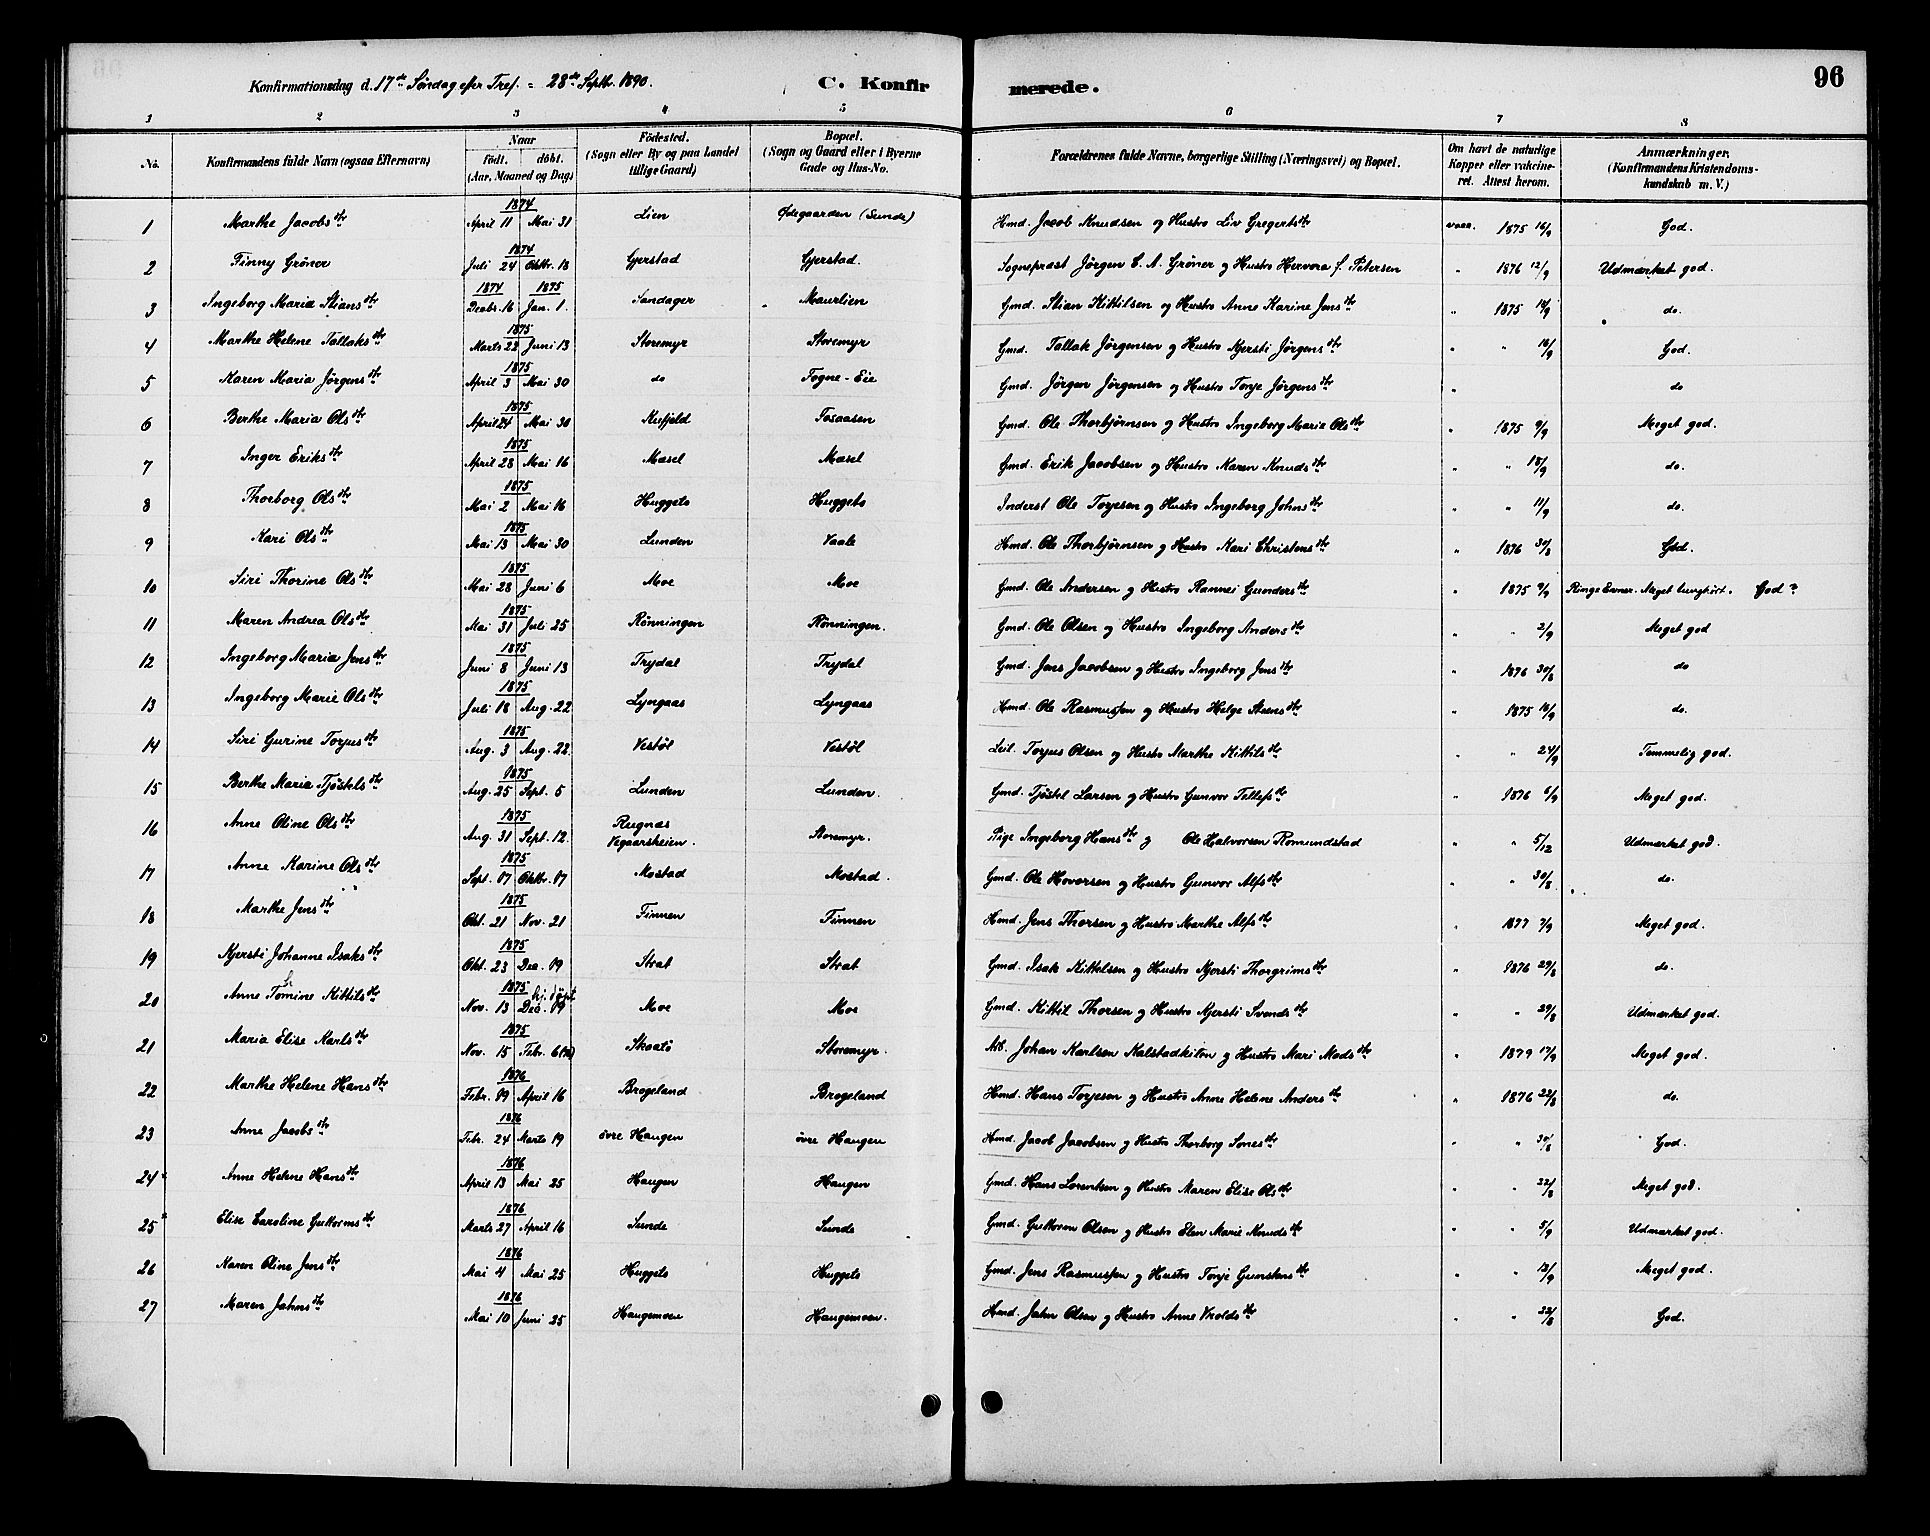 96
Konfirmationsdag d. 17de Söndag efter Tref. = 28de Septbr. 1890. C. Konfir merede.
1 2 3 4 5 6 7 8
No. Konfirmandens fulde Navn (ogsaa Efternavn) Naar födt. döbt. (Aar, Maaned og Dag) Födested. (Sogn eller By og paa Landet tillige Gaard) Bopæl. (Sogn og Gaard eller i Byerne Gade og Hus-No. Forældrenes fulde Navne, borgerlige Stilling (Næringsvei) og Bopæl. Om havt de naturlige Kopper eller vakcineret. Attest herom. Anmærkninger. (Konfirmandens Kristendomskundskab m. V.)
1 Marthe Jacobsdtr 1874 April 11 Mai 31 Lien Ødegaarden (Sunde) Hmd. Jacob Knudsen og Hustro Liv Gregertsdtr vacc. 1875 16/9 God.
2 Finny Gröner 1874 Juli 24 Oktbr. 18 Gjerstad Gjerstad. Sogneprest Jörgen C. A. Gröner og Hustro Hervora f. Petersen " 1876 12/9 Udmærket god.
3 Ingeborg Maria Stiansdtr 1874 Decbr. 16 1875 Jan. 1. Sandager Maurlien Gmd. Stian Kittilsen og Hustro Anne Karine Jensdtr " 1875 14/9 do.
4 Marthe Helene Tallaksdtr 1875 Marts 22 Juni 13 Storemyr Storemyr Gmd. Tallak Jörgensen og Hustro Kjersti Jörgensdtr " " 16/9 God.
5 Karen Maria Jörgensdtr 1875 April 3 Mai 30 do Fogne-Eie Gmd. Jörgen Jörgensen og Hustro Tonje Jörgensdtr " do
6 Berthe Maria Olsdtr 1875 April 24 Mai 30 Kufjeld Fosaasen Gmd. Ole Thorbjörnsen og Hustro Ingeborg Maria Olsdtr " 1875 9/9 Meget god.
7 Inger Eriksdtr 1875 April 28 Mai 16 Masel Masel Gmd. Erik Jacobsen og Hustro Karen Knudsdtr " " 18/9 do.
8 Thorborg Olsdtr 1875 Mai 2 Mai 16 Huggeto Huggeto Inderst Ole Torjesen og Hustro Ingeborg Johnsdtr " " 11/9 do.
9 Kari Olsdtr 1875 Mai 13 Mai 30 Lunden Vaale Hmd. Ole Thorbjörnsen og Hustro Mari Christensdtr " 1876 30/8 God.
10 Siri Thorine Olsdtr 1875 Mai 28 Juni 6 Moe Moe Gmd. Ole Andersen og Hustro Rannei Gundersdtr " 1875 9/9 Ringe Evner. Meget tunghört. God?
11 Maren Andrea Olsdtr 1875 Mai 31 Juli 25 Rönningen Rönningen. Gmd. Ole Olsen og Hustro Ingeborg Andersdtr " " 2/9 Meget god
12 Ingeborg Maria Jensdtr 1875 Juni 8 Juni 13 Trydal Trydal Gmd. Jens Jacobsen og Hustro Ingeborg Jensdtr " 1876 30/8 do
13 Ingeborg Marie Olsdtr 1875 Juli 18 Aug. 22 Lyngaas Lyngaas Hmd. Ole Rasmussen og Hustro Helge Steensdtr " 1875 16/9 do.
14 Siri Gurine Torjusdtr 1875 Aug. 3 Aug. 22 Vestöl Vestöl Leil. Torjus Olsen og Hustro Marthe Kittilsdtr " " 24/9 Temmelig god.
15 Berthe Maria Tjöstelsdtr 1875 Aug. 25 Sept. 5 Lunden Lunden. Gmd. Tjöstel Larsen og Hustro Gunvor Tellefsdtr " 1876 6/9 Meget god.
16 Anne Oline Olsdtr 1875 Aug. 31 Sept. 12. Rugnæs Vegaarsheien. Storemyr. Pige Ingeborg Hansdtr og Ole Halvorsen Romundstad " " 5/12 Udmærket god.
17 Anne Karine Olsdtr 1875 Sept. 07 Oktbr. 07 Mostad Mostad. Gmd. Ole Hoversen og Hustro Gunvor Alfsdtr " " 30/8 do.
18 Marthe Jensdtr 1875 Okt. 21 Nov. 21 Finnen Finnen Hmd. Jens Thorsen og Hustro Marthe Alfsdtr " 1877 7/9 Meget god.
19 Kjersti Johanne Isaksdtr 1875 Okt. 23 Dec. 19 Strat Strat Gmd. Isak Kittelsen og Hustro Kjersti Thorgrimsdtr " 1876 29/8 do.
20 Anne Thomine Kittilsdtr 1875 Nov. 13 hj. döbt Dec. 19 Moe Moe Gmd. Kittil Thorsen og Hustro Kjersti Svendsdtr " " 29/8 Udmærket god.
21 Maria Elise Karlsdtr 1875 Nov. 15 Febr. 6 (76) Skaatö Storemyr. Arb. Johan Karlsen Kalstadkilen og Hustro Mari Madsdtr " 1879 17/9 Meget god.
22 Marthe Helene Hansdtr 1876 Febr. 19 April 16 Brogeland Brogeland Hmd. Hans Torjesen og Hustro Anne Helene Andersdtr " 1876 22/8 do.
23 Anne Jacobsdtr 1876 Febr. 24 Marts 19 övre Haugen övre Haugen Hmd. Jacob Jacobsen og Hustro Thorborg Sonesdtr " " 30/8 God.
24 Anne Helene Hansdtr 1876 April 13 Mai 25 Haugen Haugen Gmd. Hans Lorentsen og Hustro Maren Elise Olsdtr " " 22/8 Meget god.
25 Elise Caroline Guttormsdtr 1876 Marts 27 April 16 Sunde Sunde Gmd. Guttorm Olsen og Hustro Elen Marie Knudsdtr " " 5/9 Udmærket god.
26 Karen Oline Jensdtr 1876 Mai 4 Mai 25 Huggeto Huggeto Gmd. Jens Rasmussen og Hustro Tonje Gunstensdtr " " 12/9 Meget god.
27 Maren Jahnsdtr 1876 Mai 10 Juni 25 Haugemoen Haugemoen. Hmd. Jahn Olsen og Hustro Anne Vroldsdtr " " 22/8 God.